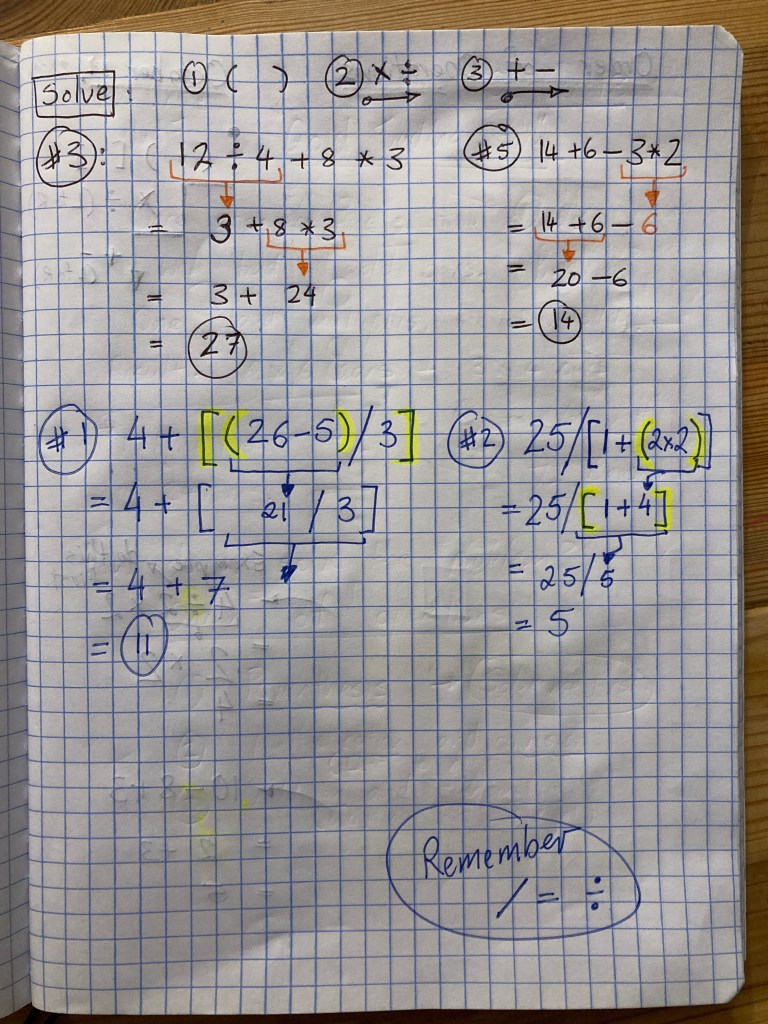 Solve : ① ( ) ② × ÷ ③ + −
#3 : 12 ÷ 4 + 8 * 3
= 3 + 8 * 3
= 3 + 24
= 27
#5 14 + 6 − 3*2
= 14 + 6 − 6
= 20 − 6
= 14
#1 4 + [(26 − 5) / 3]
= 4 + [ 21 / 3 ]
= 4 + 7
= 11
#2 25/[1 + (2×2)]
= 25/[1 + 4]
= 25/5
= 5
Remember
/ = ÷